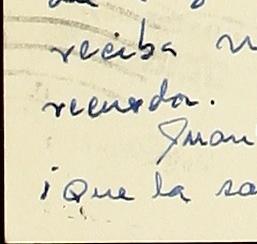 reciba
recuerdo.
Juan
¡Que la sa